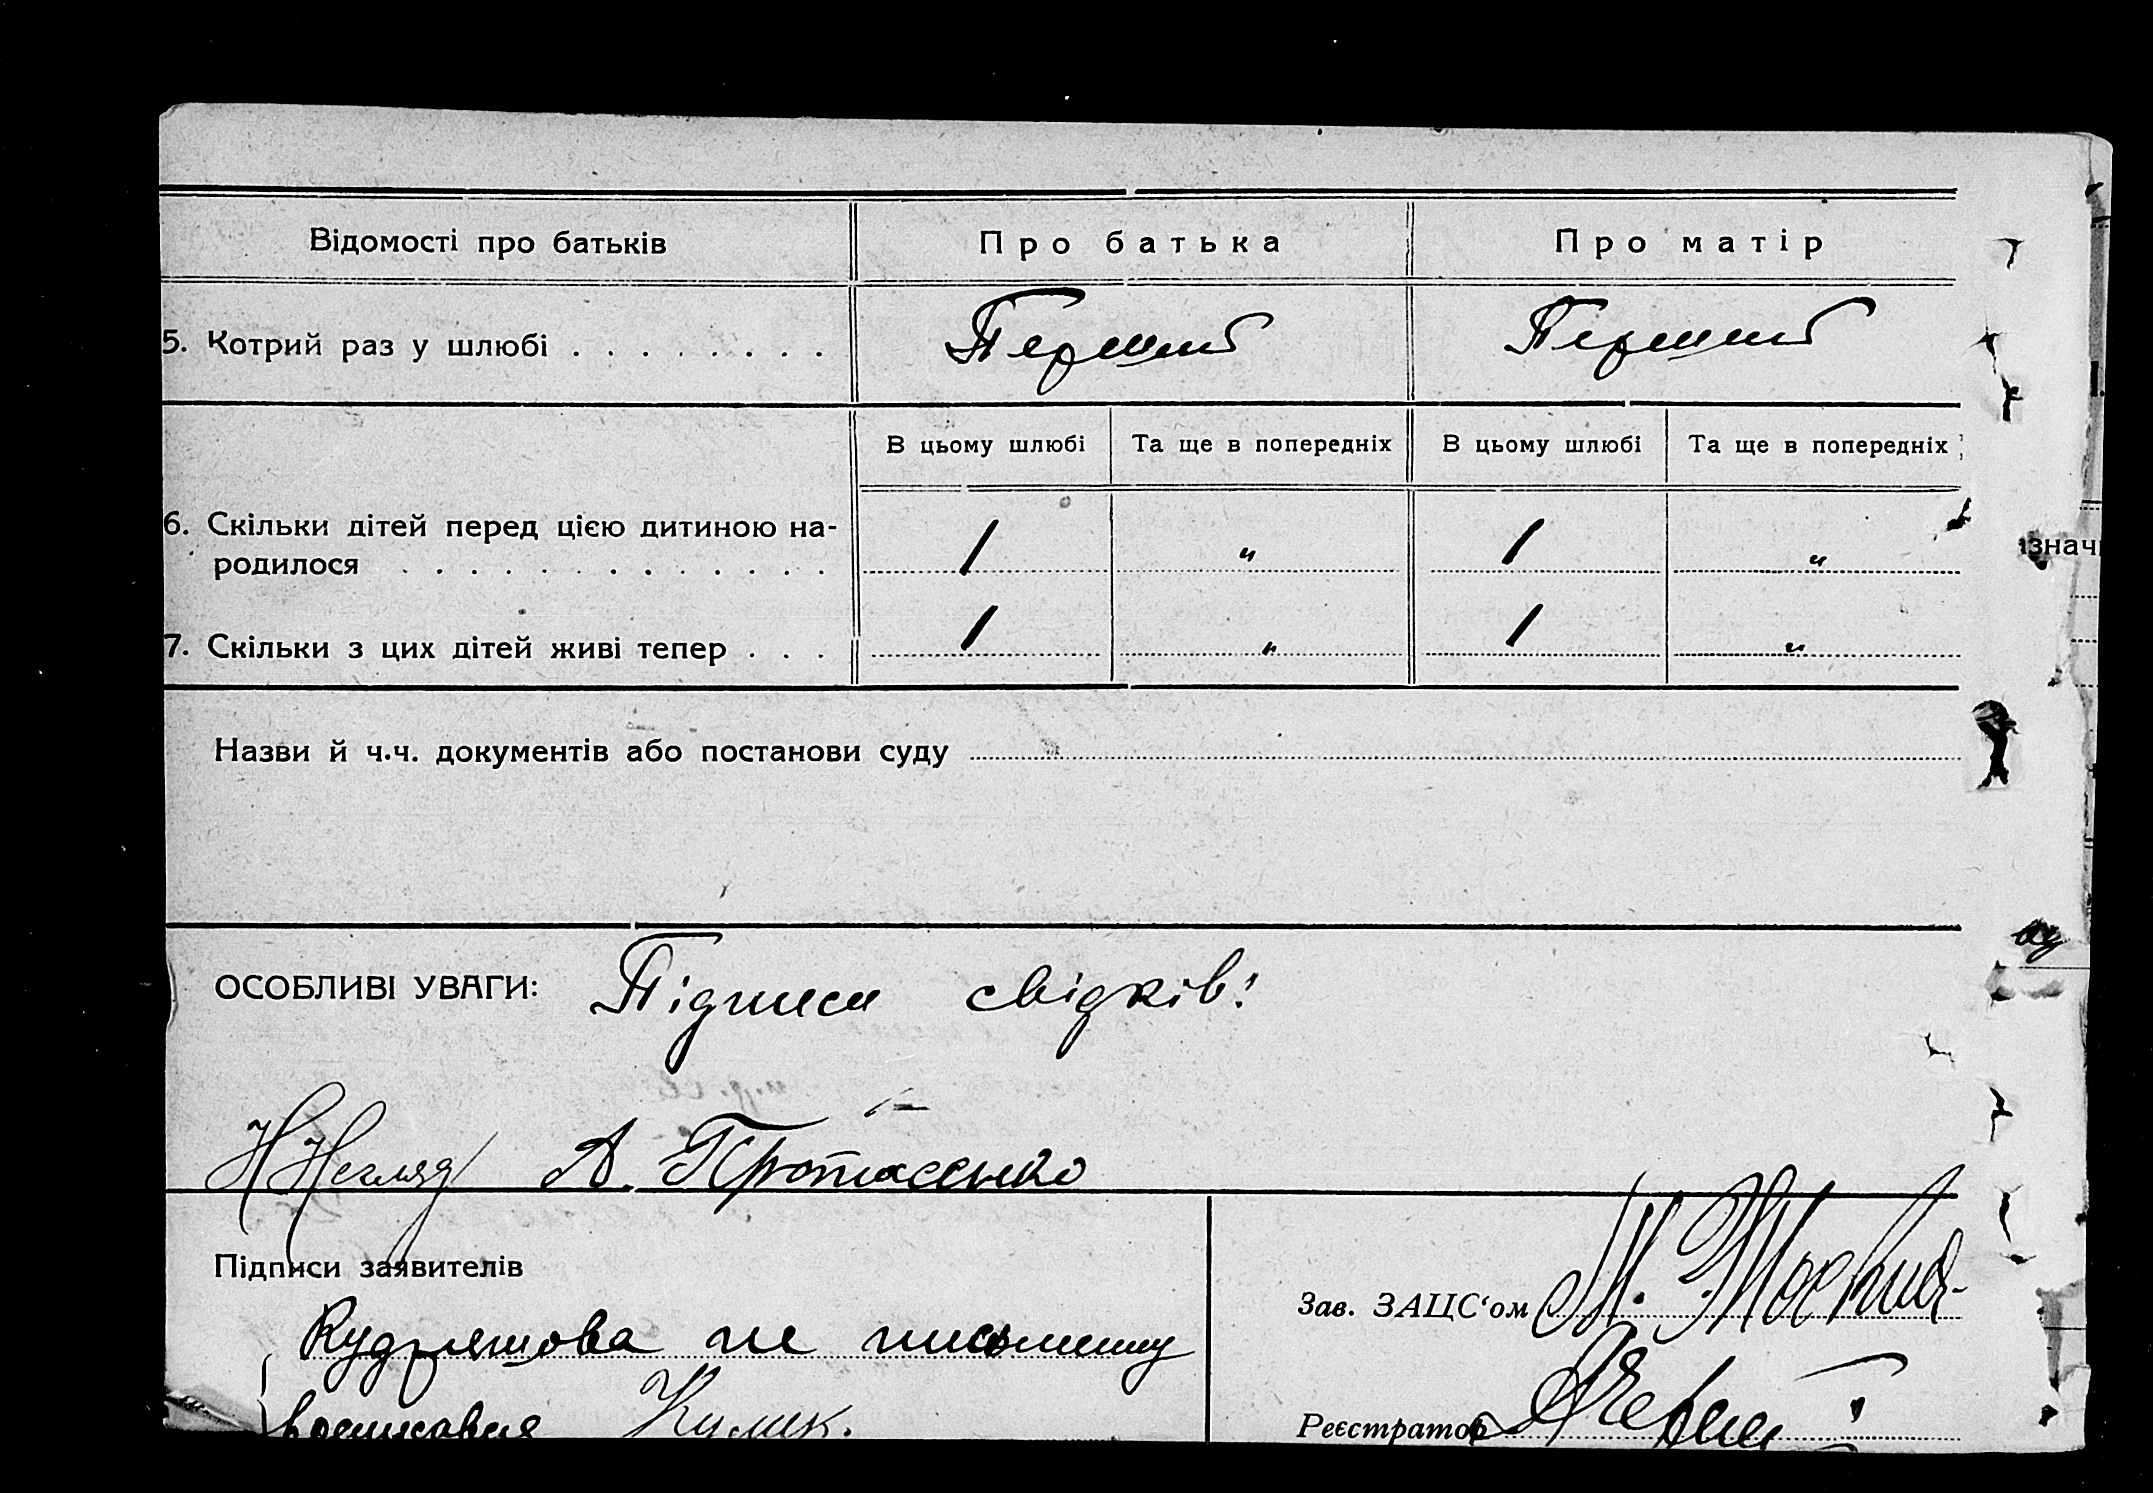 Відомості про батьків Про батька Про матір
5. Котрий раз у шлюбі . . . . . . . . Перший Перший
В цьому шлюбі Та ще в попередніх В цьому шлюбі Та ще в попередніх
6. Скільки дітей перед цією дитиною на-
родилося . . . . . . . . . . . . . 1 " 1 "
7. Скільки з цих дітей живі тепер . . . 1 " 1 "
Назви й ч.ч. документів або постанови суду
ОСОБЛИВІ УВАГИ: Підписи свідків:
А. Протасенко
Підписи заявителів
Кудряшова не письменну
розписався Кулик.
Зав. ЗАЦС‘ом М.
Реєстратор
ізнач